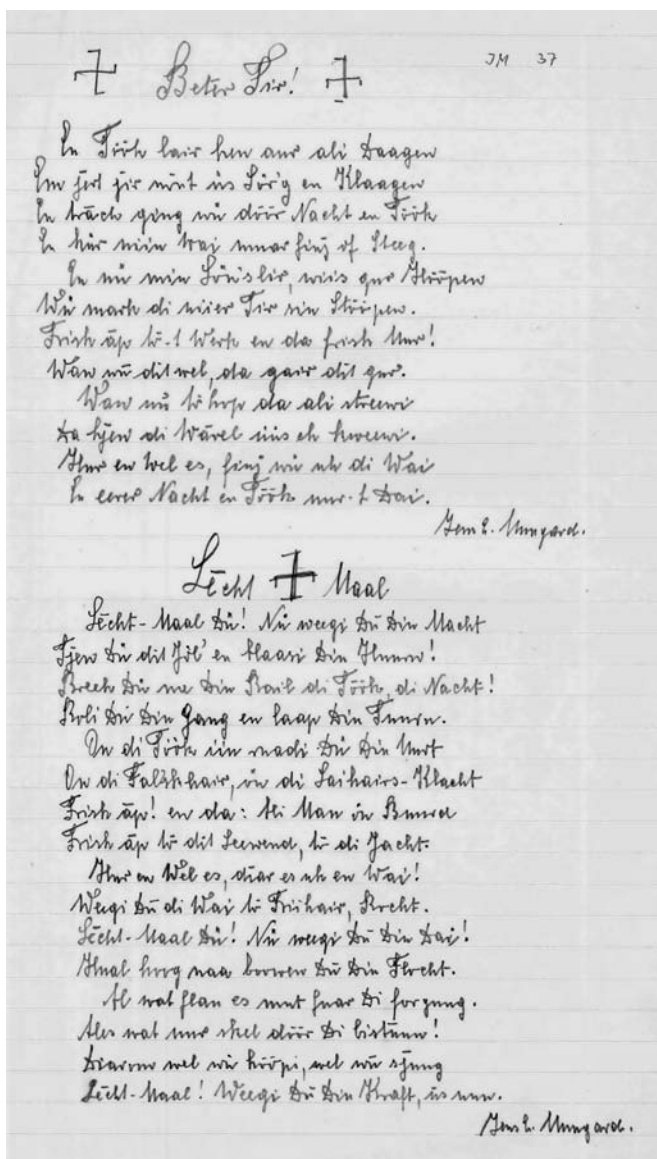 Beter Tir!
JM 37
En Töök lair hen aur ali Daagen
Em jert jir nönt üs Sörig en Klaagen
En träch ging wü döör Nacht en Töök
En hür niin Wai muar finj of Steeg.
En nü min wiis gur Hööpen
Wü mark di niier Tir sin Stööpen.
Frish äp tö-t Werk en da frish Mur!
Wan wü dit wel, da gair dit gur.
Wan wü tö hop da ali streewi
Da kjen di Wārel üüs ek kweewi.
Hur en Wel es, finj wü uk di Wai
En eeter Nacht en Töök uur-t Dai.
Jens E. Mungard.
Lēcht Maal
Lēcht-Maal Dü! Nü weegi Dü Din Macht
Tjen Dü dit Jöl' en blaasi Din Huurn!
Breek Dü me Din Stail di Töök, di Nacht!
Roli Dü Din Gang en laap Din Tuurn.
Ön di Töök iin madi Dü Din Uurt
Ön di Falskhair, ön di Laihairs-Klacht
Frish äp! en da: Ali Man ön Buurd
Frish äp tö dit Leewend, tö di Jacht.
Hur en Wel es, diar es uk en Wai!
Weegi Dü di Wai tö Friihair, Recht.
Lēcht-Maal Dü! Nü weegi Dü Din Dai!
Hual hoog naa boowen Dü Din Flecht.
Al wat flau es mut fuar Di forgung.
Ales wat uur skel döör Di bistuun!
Diarom wel wü hööpi, wel wü sjung
Lēcht-Maal! Weegi Dü Din Kraft, üs nun.
Jens E. Mungard.